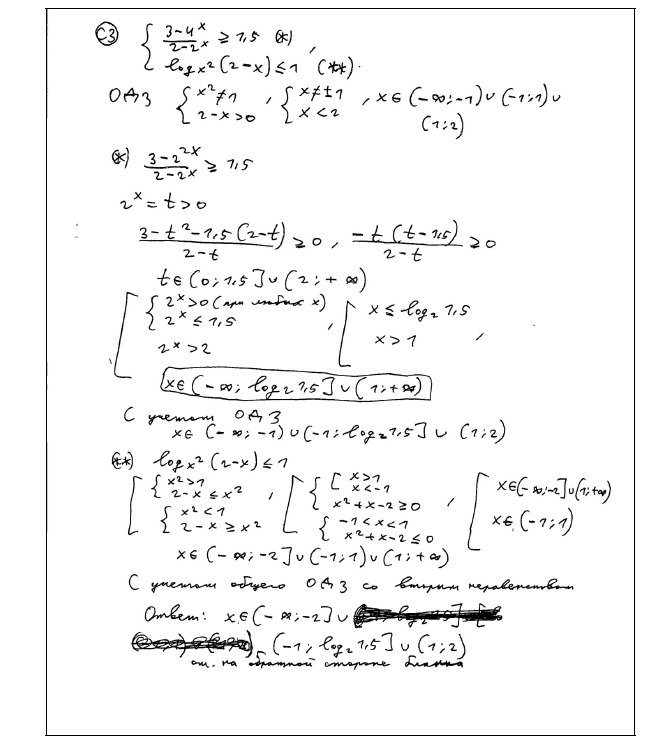 C3 { (3-4^x)/(2-2^x) ≥ 1,5 (*)
{ log_{x²}(2-x) ≤ 1 (**).
ОДЗ { x² ≠ 1 ; 2-x > 0 , { x ≠ ±1 ; x < 2 , x ∈ (-∞; -1) ∪ (-1; 1) ∪
(1; 2)
(*) (3-2^{2x})/(2-2^x) ≥ 1,5
2^x = t > 0
(3-t²-1,5(2-t))/(2-t) ≥ 0 , (-t(t-1,5))/(2-t) ≥ 0
t ∈ (0; 1,5] ∪ (2; +∞)
[ { 2^x > 0 (при любых x) ; 2^x ≤ 1,5 , [ x ≤ log₂ 1,5
2^x > 2 x > 1 ,
x ∈ (-∞; log₂ 1,5] ∪ (1; +∞)
С учетом ОДЗ
x ∈ (-∞; -1) ∪ (-1; log₂ 1,5] ∪ (1; 2)
(**) log_{x²}(2-x) ≤ 1
[ { x² > 1 ; 2-x ≤ x² , [ { [ x > 1 ; x < -1 ; x²+x-2 ≥ 0 , [ x ∈ (-∞; -2] ∪ (1; +∞)
{ x² < 1 ; 2-x ≥ x² { -1 < x < 1 ; x²+x-2 ≤ 0 x ∈ (-1; 1)
x ∈ (-∞; -2] ∪ (-1; 1) ∪ (1; +∞)
С учетом общего ОДЗ со вторым неравенством
Ответ: x ∈ (-∞; -2] ∪
(-1; log₂ 1,5] ∪ (1; 2)
см. на обратной стороне бланка